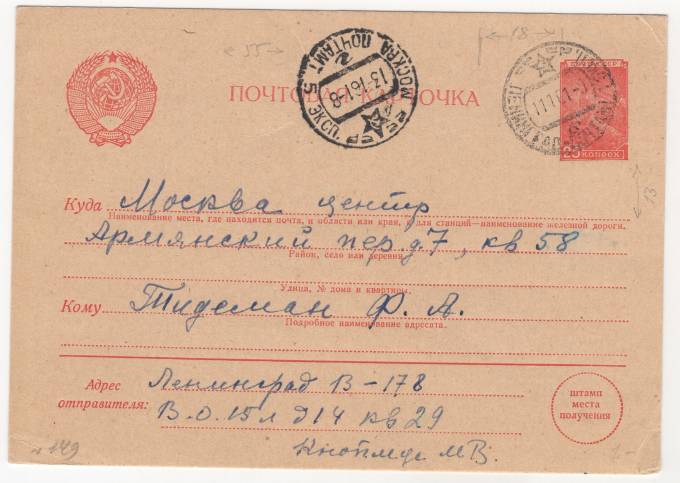 55
18
МОСКВА ПОЧТАМТ
2
13-1
5 ЭКСП.
СССР
ПОЧТОВАЯ КАРТОЧКА
25 КОПЕЕК
13
Куда Москва центр
Наименование места, где находится почта, и области или края, а для станций—наименование железной дороги.
Армянский пер. д 7, кв 58
Район, село или деревня.
Улица, № дома и квартиры.
Кому Тидеман Ф. А.
Подробное наименование адресата.
Адрес отправителя: Ленинград В-178
В.О. 15л д 14 кв 29
МВ.
штамп
места
получения
149